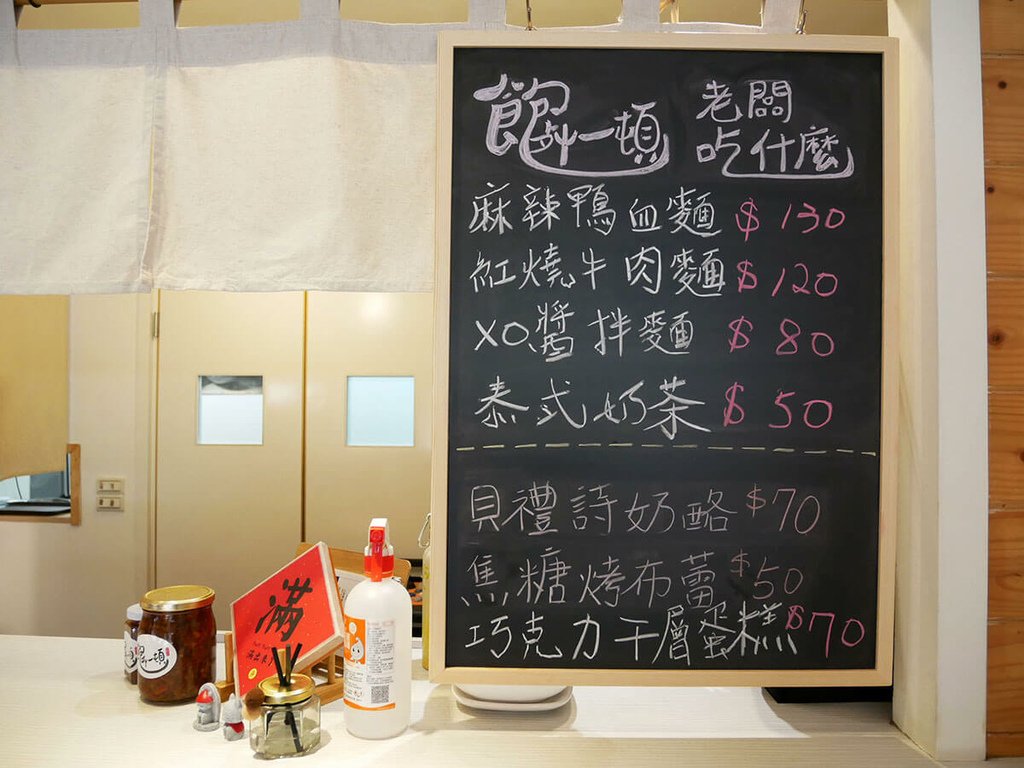 飽一頓
老闆
吃什麼
麻辣鴨血麵 $130
紅燒牛肉麵 $120
XO醬拌麵 $80
泰式奶茶 $50
貝禮詩奶酪 $70
焦糖烤布蕾 $50
巧克力千層蛋糕 $70
滿
一頓